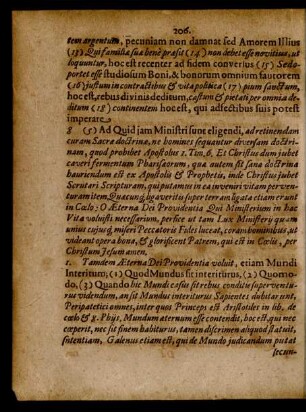 206.
tem argentum, pecuniam non damnat sed Amorem Illius
(13) Qui familiæ suæ benè præsit (14) non debet esse novitius, ut
loquuntur, hoc est recenter ad fidem conversus (15) Sed o-
portet esse studiosum Boni, & bonorum omnium fautorem
(16) justum in contractibus & vita politica (17) pium sanctum,
hoc est, rebus divinis deditum, castum & pietati per omnia de-
ditum (18) continentem hoc est, qui adfectibus suis potest
imperare
8 (5) Ad Quid jam Ministri sunt eligendi, ad retinendam
curam Sacra doctrina, ne homines sequantur diversam doctri-
nam, quod prohibet Apostolus 1. Tim, 6, Et Christus dum jubet
caveri fermentum Pharisæorum, qua autem sit sana doctrina
hauriendum est ex Apostolis & Prophetis, inde Christus jubet
Scrutari Scripturam, qui putamus in ea inveniri vitam perven-
turam item Quæcunq; ligaveritis super terram ligata etiam erunt
in Cælo; O Æterna Dei Providentia Qui Ministerium in hac
Vita voluisti necessarium, perfice ut tam Lux Ministerii quam
unius cujusq; miseri Peccatoris Fides luceat, coram hominibus, ut
videant opera bona, & glorificent Patrem, qui est in Cœlis, per
Christum Jesum amen.
1. Tandem Æterna Dei Providentia voluit, etiam Mundi
Interitum; (1) Quod Mundus sit interiturus, (2) Quomo-
do, (3) Quando hic Mundi casus sit rebus conditis superventu-
rus videndum, an sit Mundus interiturus Sapientes dubitarunt,
Peripatetici omnes, inter quos Princeps est Aristoteles in lib. de
cælo & 8. Phys, Mundum æternum esse contendit, hoc est, qui nec
cœperit, nec sit finem habiturus, tamen discrimen aliquod statuit,
sententiam, Galenus etiam est, qui de Mundo judicandum putat
secun-